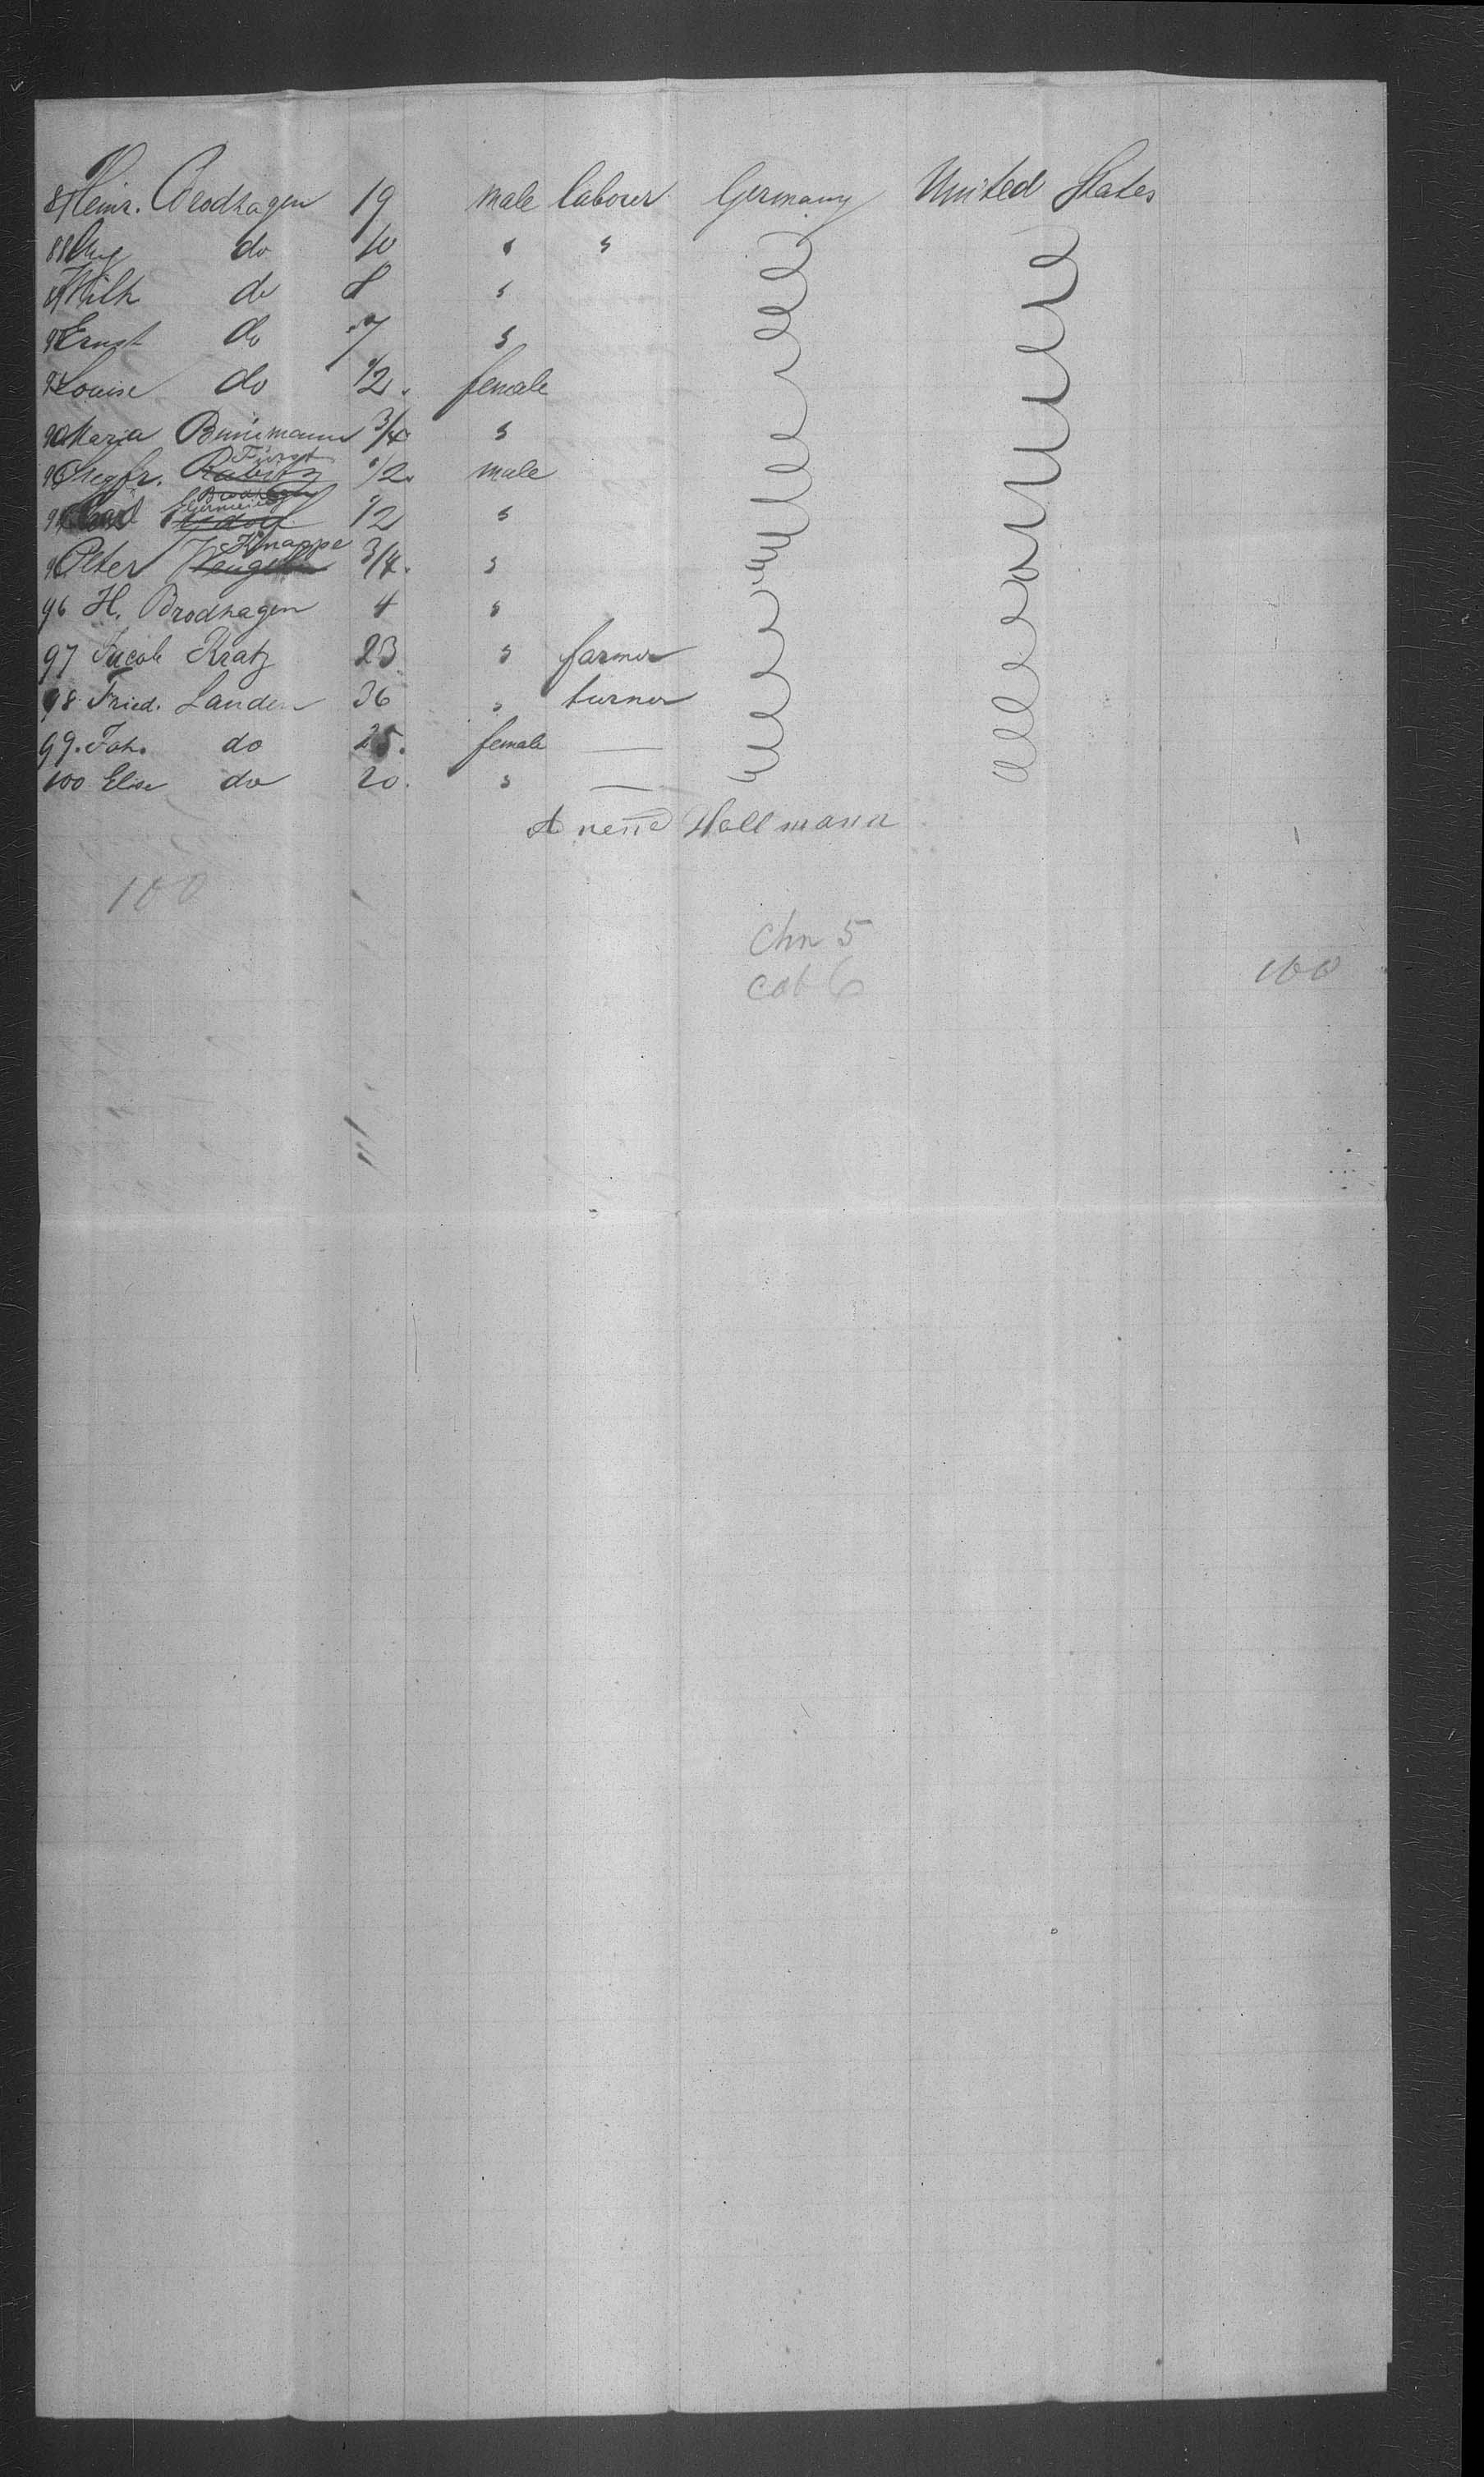 87 Heinr. Brodhagen 19 male labourer Germany United States
88 Aug do 10 " "
89 Wilh do 8 "
90 Ernst do 7 "
91 Louise do 1/2. female
92 Maria Bünemann 3/4 "
Fürst
93 Siegfr. 1/2. male
94 Carl 1/2 "
Knappe
95 Peter 3/4. "
96 H. Brodhagen 4 "
97 Jacob Kratz 23 " farmer
98 Fried. Landen 36 " turner
99. Joh. do 25. female —
100 Elise do 20. " —
Hellmann
100
Chn 5
cab 6
100